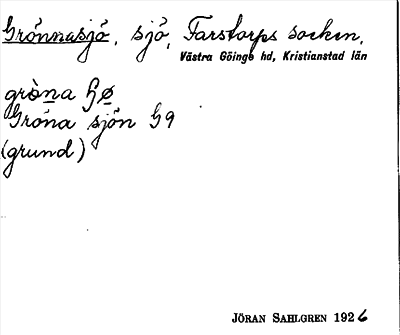 Grönnasjö, sjö, Farstorps socken,
Västra Göinge hd, Kristianstad län
Gröna sjön
(grund)
JÖRAN SAHLGREN 1926